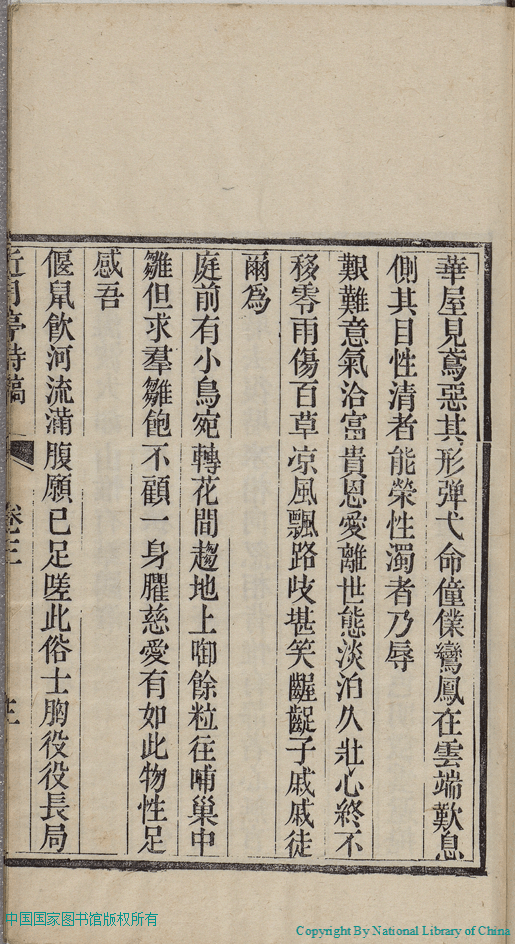 華屋見鳶惡其形弹弋命僮僕鸞鳳在雲端歎息
側其目性清者能榮性濁者乃辱
艱難意氣洽富貴恩愛離世態淡泊久壯心終不
移零雨傷百草凉風飄路歧堪笑齷齪子戚戚徒
爾爲
庭前有小鳥宛轉花間趨地上啣餘粒往哺巢中
雛但求羣雛飽不顧一身臞慈愛有如此物性足
感吾
偃鼠飲河流滿腹願已足嗟此俗士胸役役長局
亭詩稿 卷三
中国国家图书馆版权所有
Copyright By National Library of China